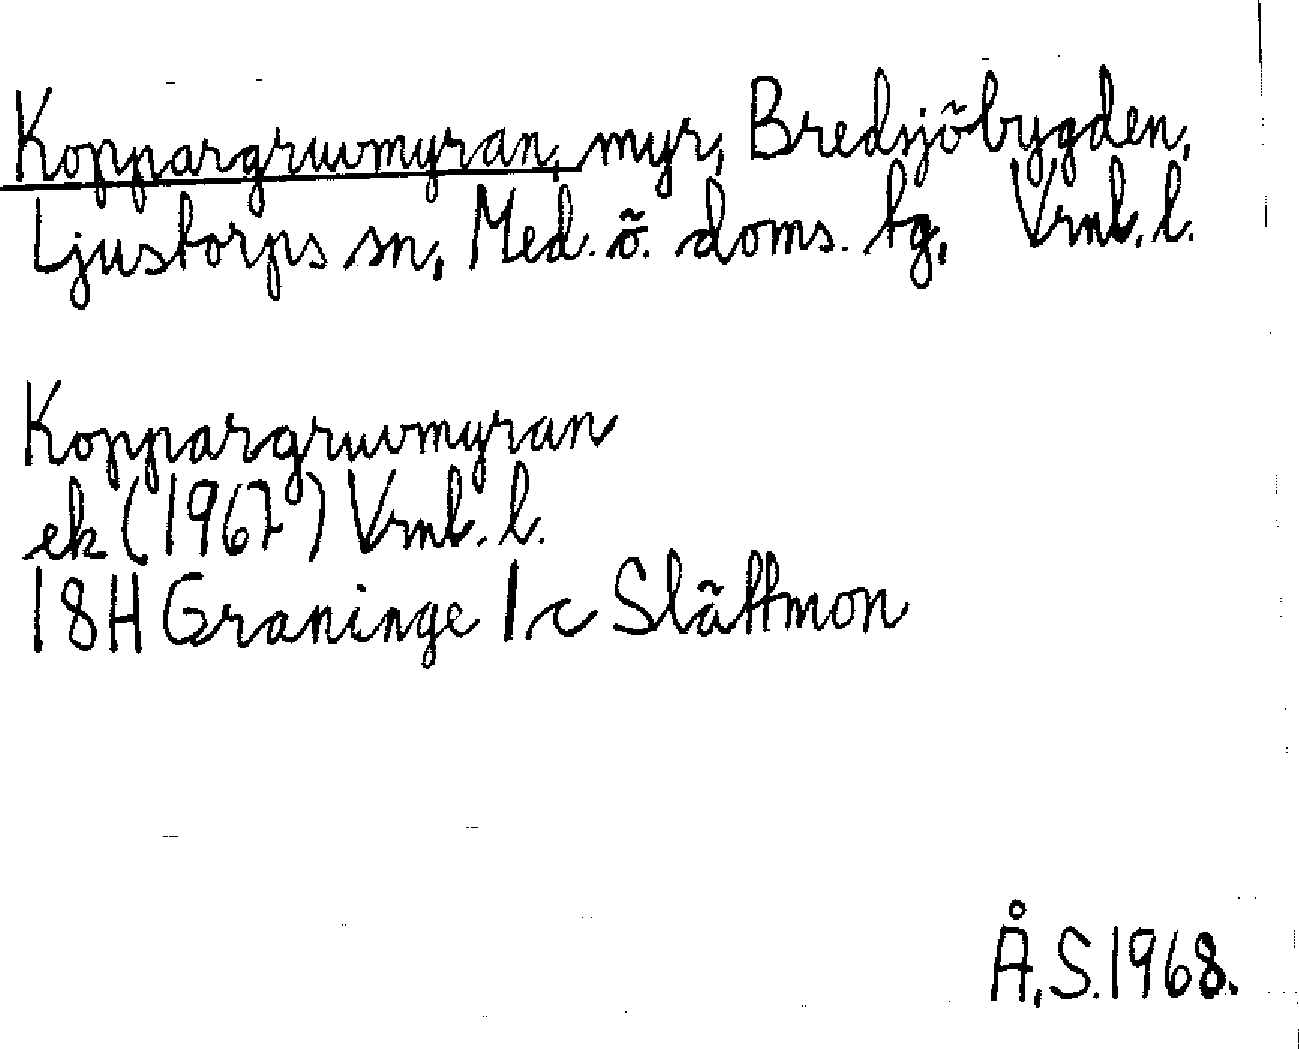 Koppargruvmyran, myr, Bredsjöbygden,
Ljustorps sn, Med. ö. doms. tg, Vrnl. l.
Koppargruvmyran
ek (1967) Vrnl. l.
18H Graninge 1c Slättmon
Å.S. 1968.